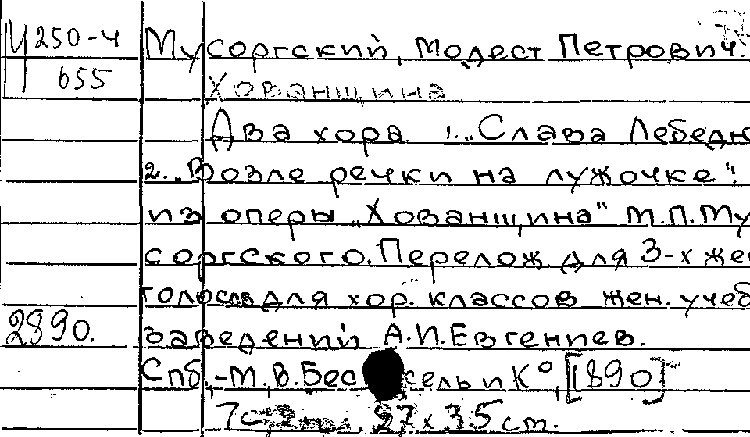 Ц 250-4 Мусоргский, Модест Петрович.
655 Хованщина
Два хора 1. „Слава Лебедю
2. „Возле речки на лужочке".
из оперы „Хованщина" М.П.Му
соргского. Перелож для 3-х жен
голосов для хор. классов жен. учеб
2890. заведений А.И.Евгениев.
Спб,-М. В.Бес ель и К°, [1890]
7с. 27х35 cm.